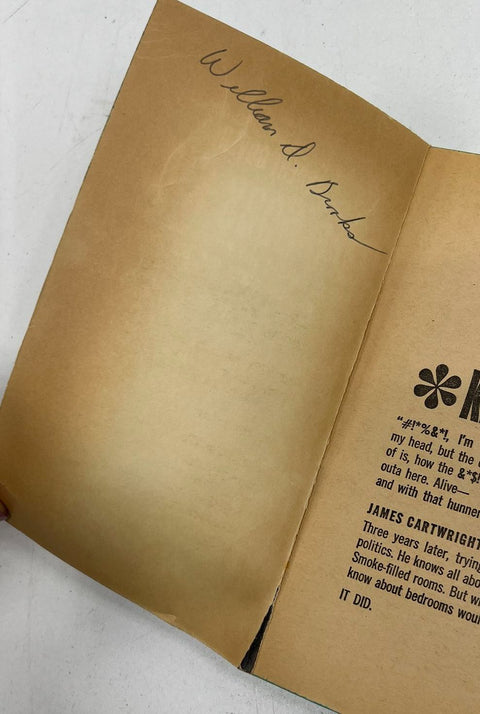 William D. Binks
"#!*%&*!, I'm
my head, but the
of is, how the &*$!
outa here. Alive—
and with that hunner
JAMES CARTWRIGHT
Three years later, trying
politics. He knows all abo
Smoke-filled rooms. But w
know about bedrooms woul
IT DID.